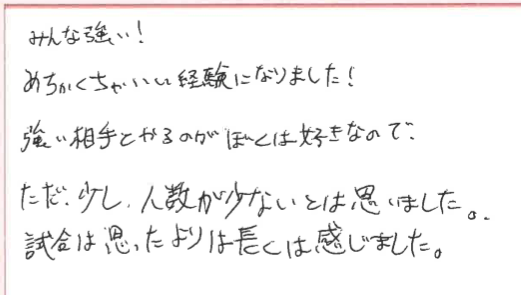 みんな強い!
めちゃくちゃいい経験になりました!
強い相手とやるのがぼくは好きなので、
ただ、少し、人数が少ないとは思いました。
試合は思ったよりは長くは感じました。